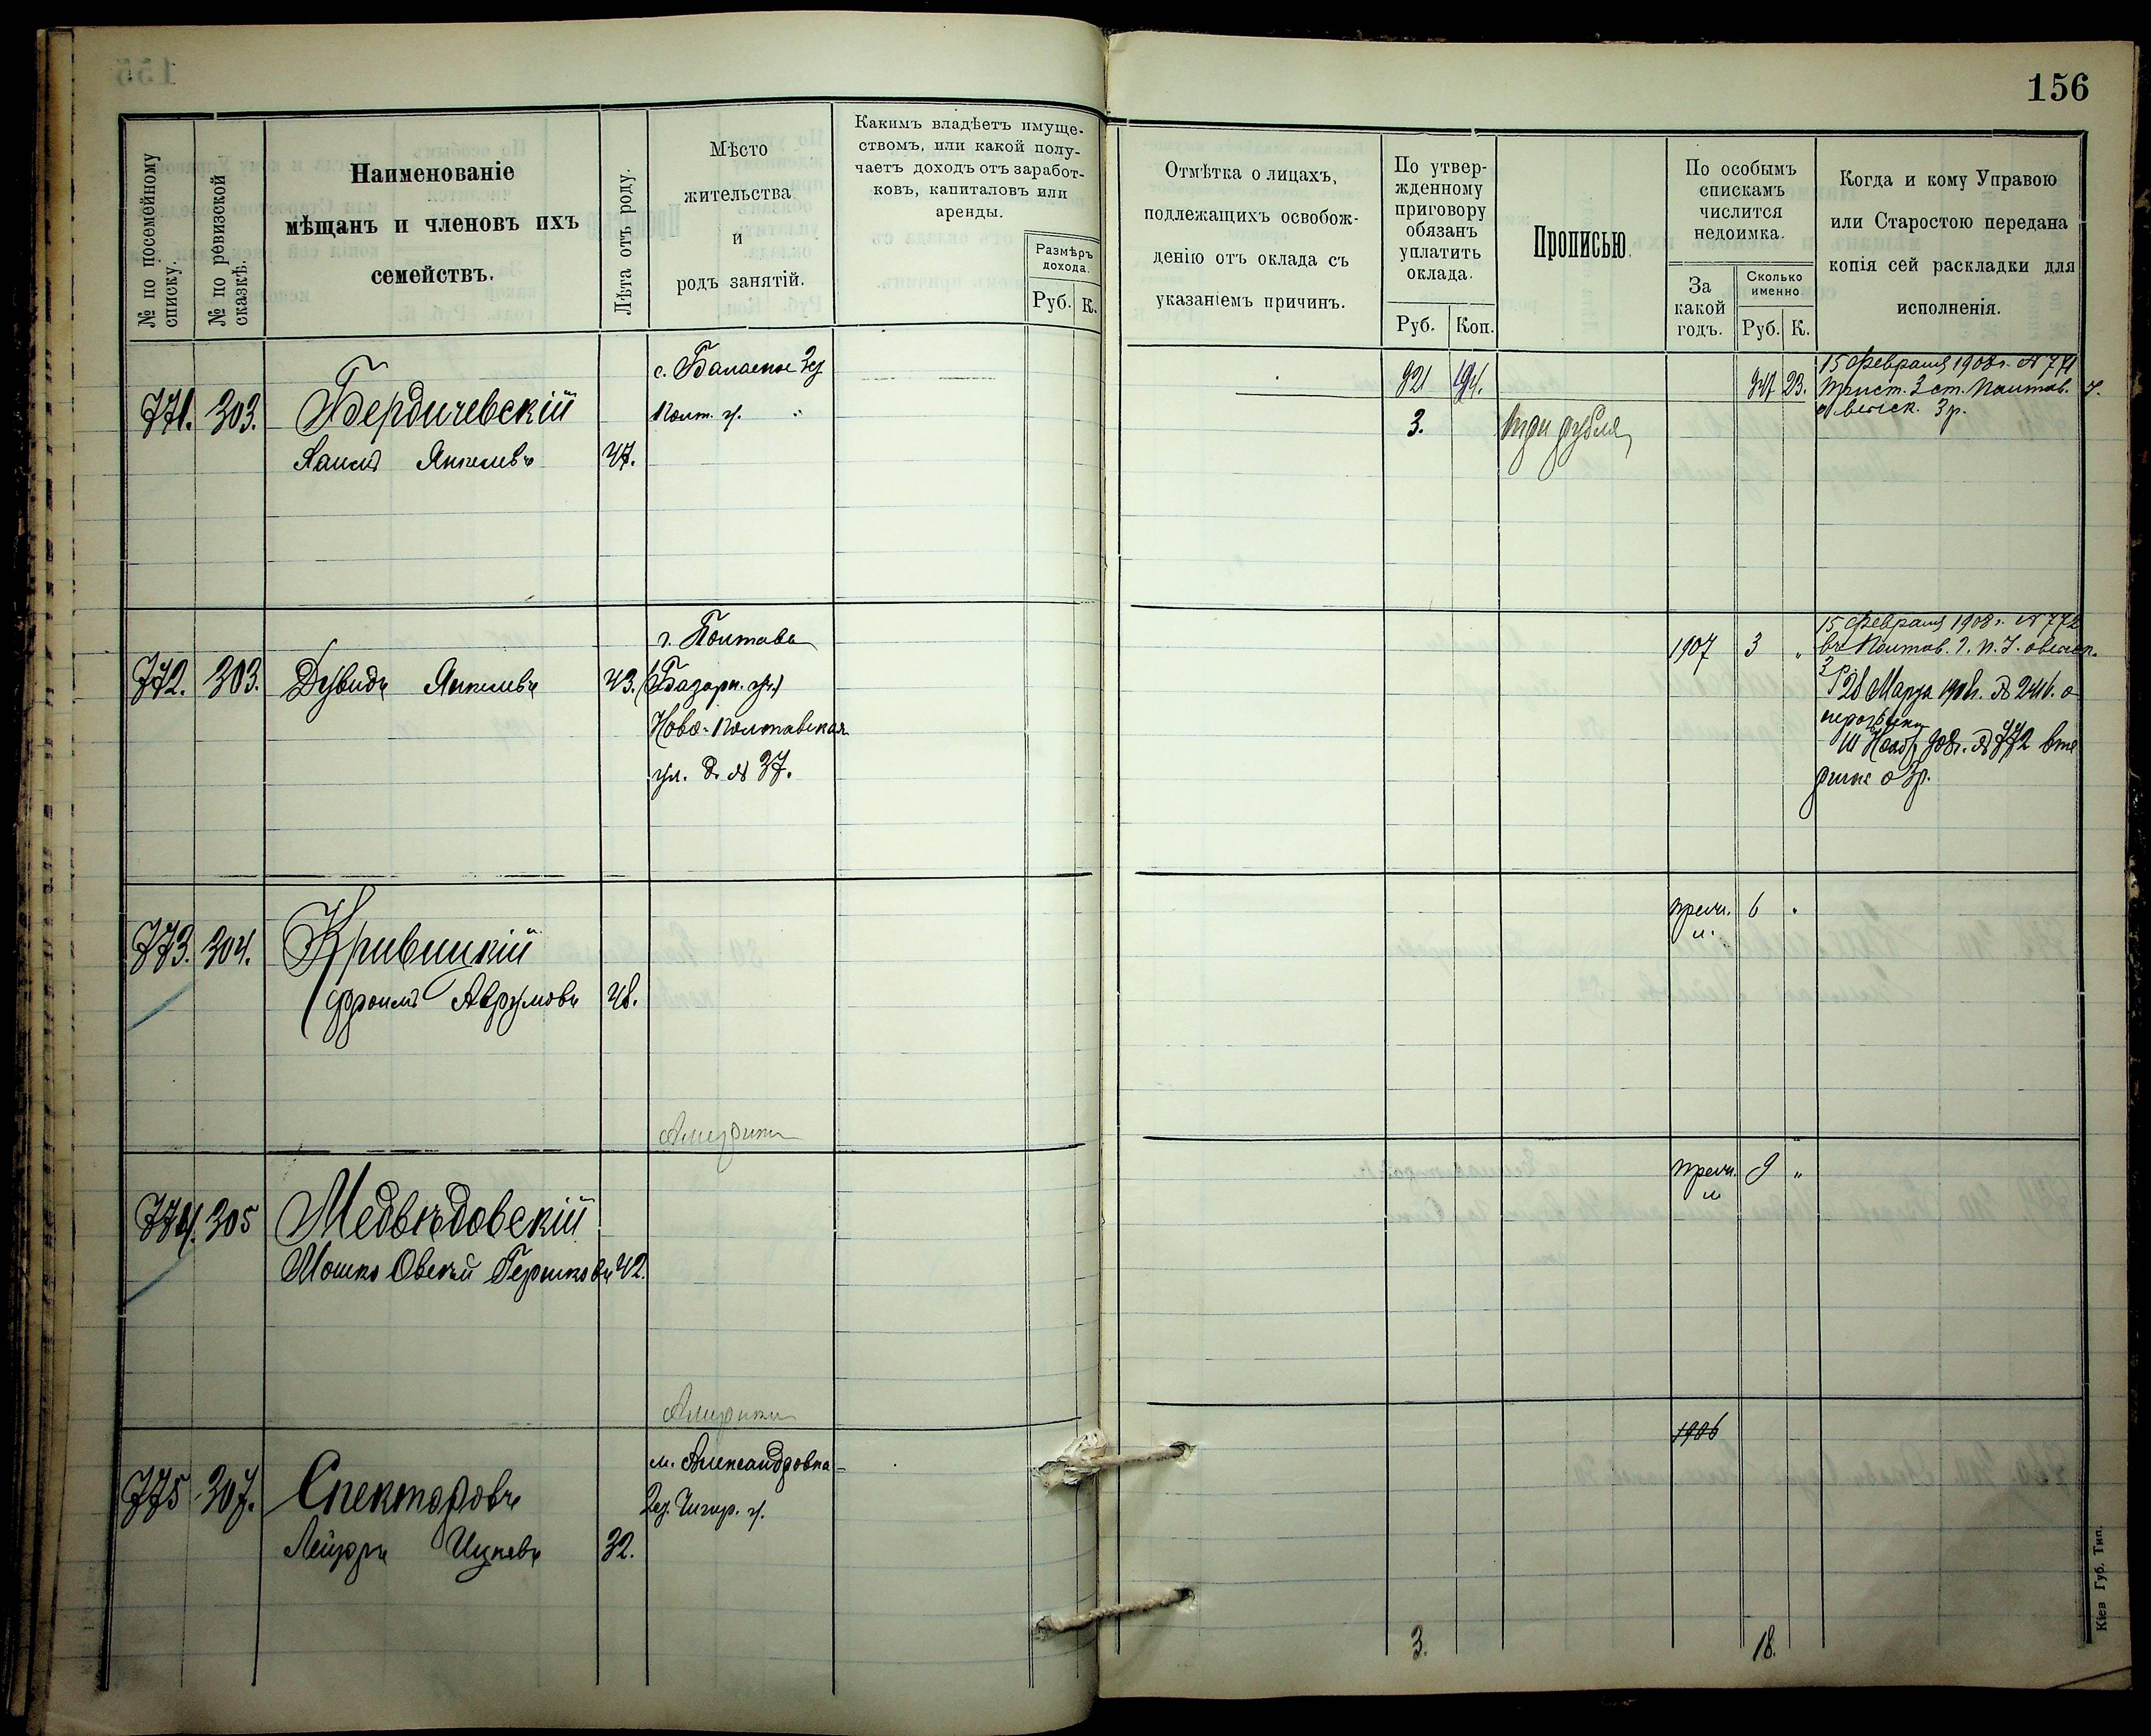 156
№ по посемейному
списку.
№ по ревизской
сказкѣ.
Наименованіе
мѣщанъ и членовъ ихъ
семействъ.
Лѣта отъ роду.
Мѣсто
жительства
и
родъ занятій.
Какимъ владѣетъ имуще-
ствомъ, или какой полу-
чаетъ доходъ отъ заработ-
ковъ, капиталовъ или
аренды.
Размѣръ
дохода.
Руб. К.
Отмѣтка о лицахъ,
подлежащихъ освобож-
денію отъ оклада съ
указаніемъ причинъ.
По утвер-
жденному
приговору
обязанъ
уплатить
оклада.
Руб. Коп.
Прописью.
По особымъ
спискамъ
числится
недоимка.
За
какой
годъ.
Сколько
именно
Руб. К.
Когда и кому Управою
или Старостою передана
копія сей раскладки для
исполненія.
771. 303. Бердичевскій
Янкелевъ 47.
Полт. у.
921
347 23.
3. три рубля
15 Февраля 1908 г. № 771
Прист. 3 ст. Полтав. У.
взыск. 3 р.
772. 303. Дувидъ Янкелевъ 43.
г. Полтава
(Базарн. уч.)
Ново-Полтавская
ул. д. № 37.
1907 3 „
15 Февраля 1908 г. № 772
въ Полтав. Г. П. У. о взыск.
3 р.
28 Марта 1908 г.
о розыскѣ
908 г. № 772 вто
рично о 3 р.
773. 304. Кривицкій
Фроимъ Аврумовъ 48.
Америки
6 „
774. 305 Медвѣдовскій
Мошко Овсѣй Гершковъ 42.
Америки
9 „
775 307. Спекторовъ
Лейзоръ Ицковъ 32.
м. Александровка
Чигир. у.
1906
3. 18.
Кіев Губ. Тип.